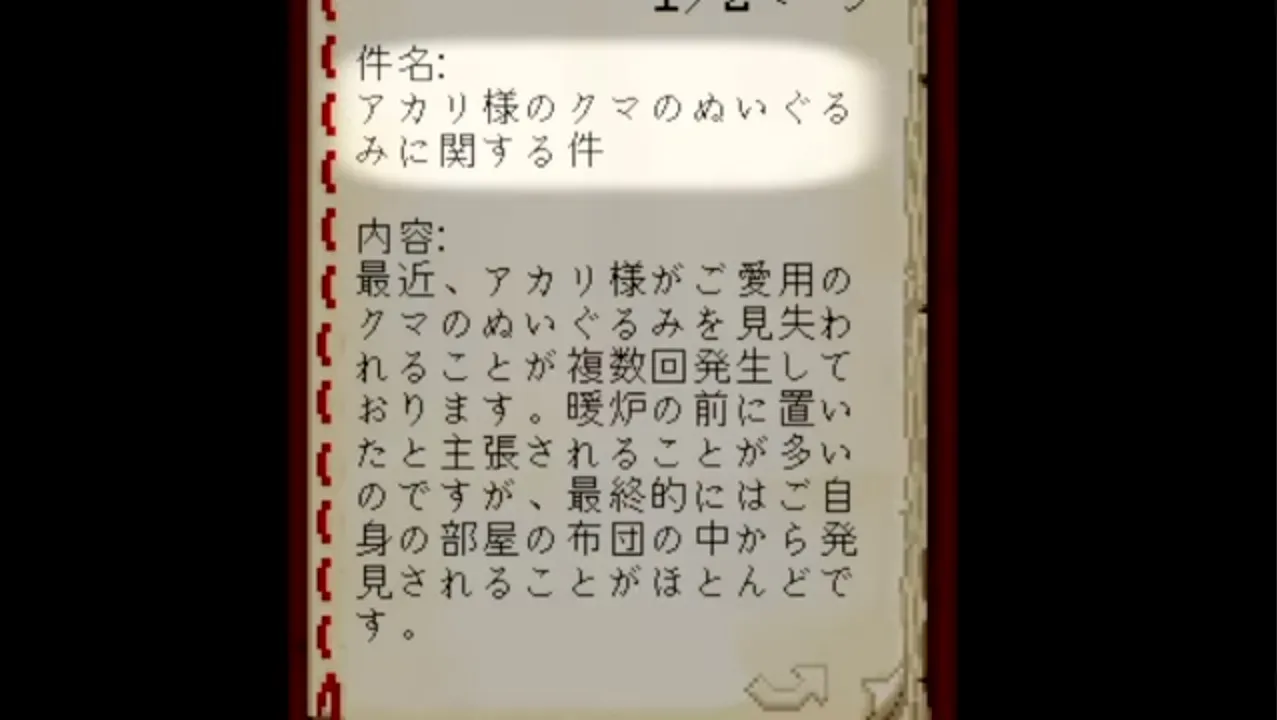 1/2ページ
件名:
アカリ様のクマのぬいぐる
みに関する件
内容:
最近、アカリ様がご愛用の
クマのぬいぐるみを見失わ
れることが複数回発生して
おります。暖炉の前に置い
たと主張されることが多い
のですが、最終的にはご自
身の部屋の布団の中から発
見されることがほとんどで
す。